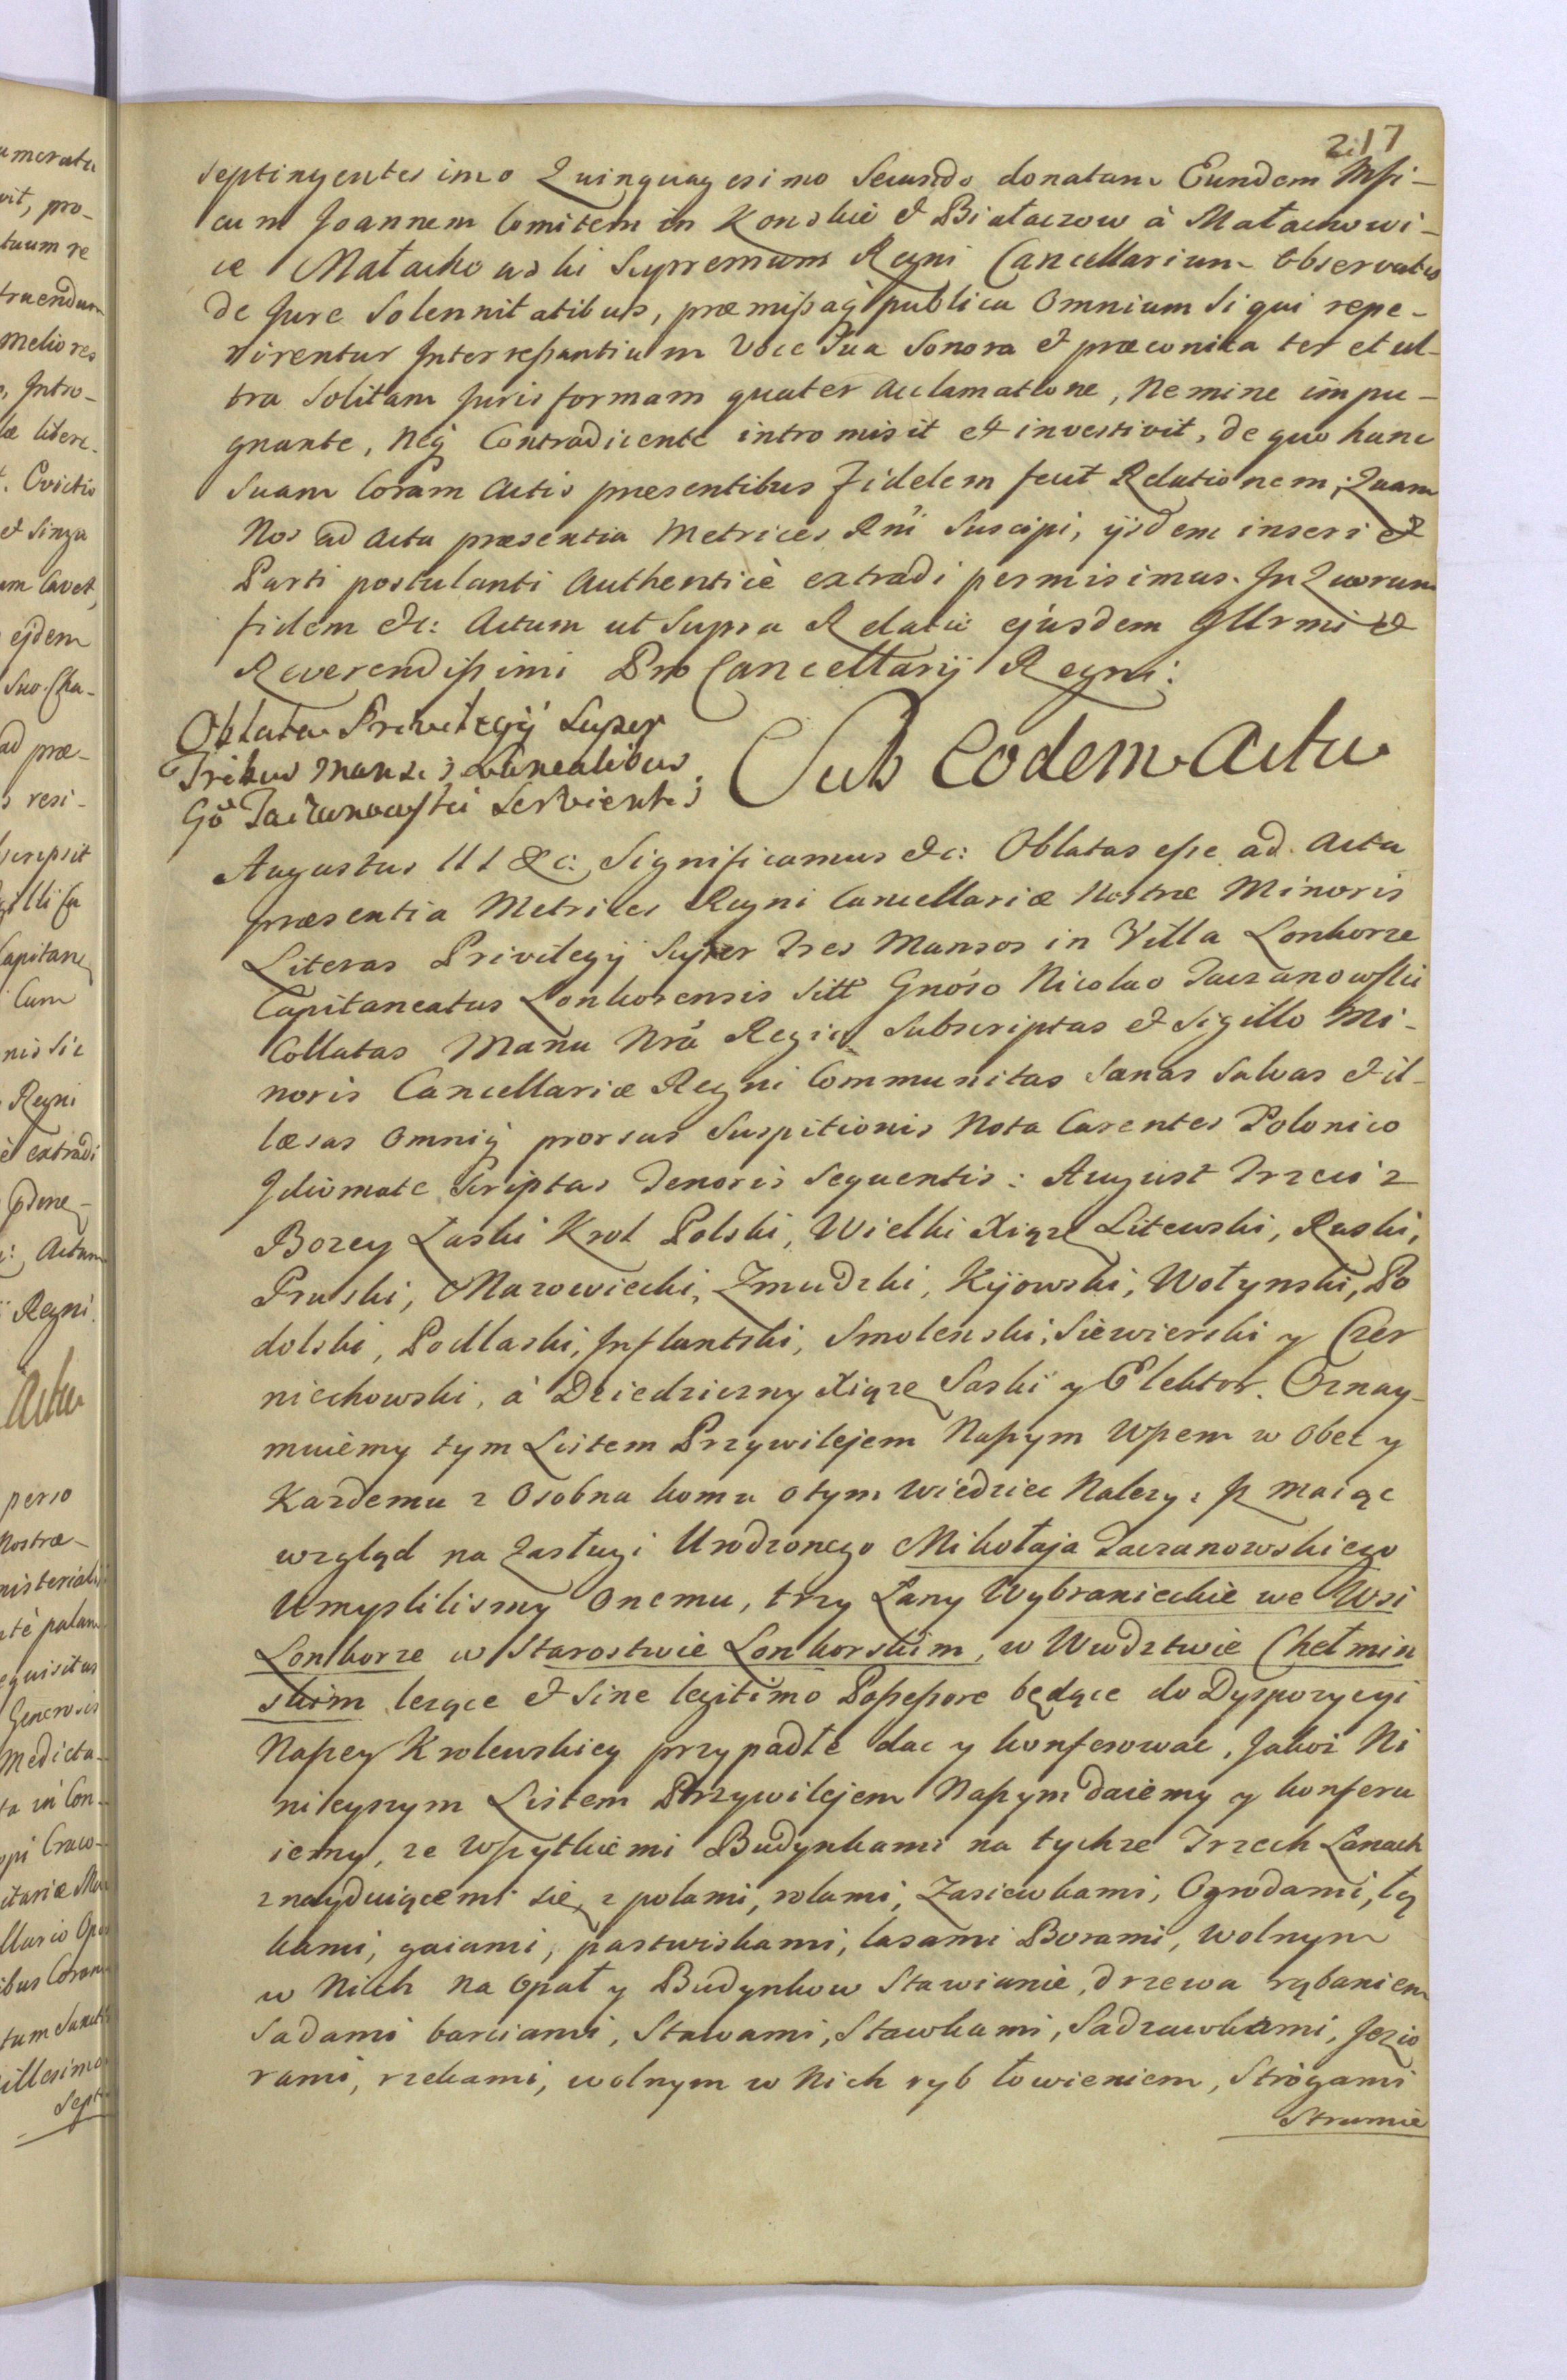 217
septingentesimo Quinquagesimo Secundo donatam Eundem Mfi-
cum Joannem Comitem in Konskie & Białaczow à Małachowi-
ce Małachowski Supremum Regni Cancellarium Observatis
de Jure Solennitatibus, præmißaq publica Omnium Si qui repe-
rirentur Interreßantium Voce Sua Sonora & præconica ter et ul-
tra Solitam Juris formam quater acclamatione, Nemine impu-
gnante, Neq Contradicente intromisit et investivit, de quo hanc
Suam Coram Actis præsentibus fidelem fecit Relationem; Quam
Nos ad Acta præsentia Metrices Rni Suscipi, ijsdem inseri &
Parti postulanti Authenticè extradi permisimus. In Quorum
fidem &c: Actum ut Supra Relatio ejusdem Illrmi &
Reverendißimi Pro Cancellarij Regni.
Oblata Privilegij Super
Tribus Mansis Lanealibus
Go Taczanowski Servientis
Sub Eodem Actu
Augustus III &c: Significamus &c: Oblatas eße ad Acta
præsentia Metrices Regni Cancellariæ Nostræ Minoris
Literas Privilegij Super Tres Mansos in Villa Lonkorze
Capitaneatus Lonkorensis Sitt Gnoso Nicolao Taczanowski
Collatas Manu Nrâ Regia Subscriptas & Sigillo Mi-
noris Cancellariæ Regni Communitas Sanas Salvas & il-
læsas Omniq prorsus Suspitionis Nota Carentes Polonico
Idiomate Scriptas Tenoris Sequentis: August Trzeci z
Bozey Łaski Krol Polski, Wielki Xiąze Litewski, Ruski,
Pruski, Mazowiecki, Zmudzki, Kijowski, Wołynski, Po
dolski, Podlaski, Inflantski, Smolenski, Siewierski y Czer
niechowski, à Dziedziczny Xiąze Saski y Elektor. Oznay-
muiemy tym Listem Przywilejem Naßym Wßem w Obec y
Kazdemu z Osobna komu o tym Wiedziec Nalezy: Jz maiąc
wzgląd na Zasługi Urodzonego Mikołaja Taczanowskiego
Umyslilismy Onemu, trzy Łany Wybranieckie we Wsi
Lonkorze w Starostwie Lonkorskim, w Wwdztwie Chełmin
skim lezące & Sine legitimo Poßeßore będące do Dyspozycyi
Naßey Krolewskiey przypadłe dac y konferowac, Jakoz Ni
nieyszym Listem Przywilejem Naßym daiemy y konferu
iemy, ze wßytkiemi Budynkami na tychze Trzech Łanach
znayduiącemi się, z polami, rolami, Zasiewkami, Ogrodami, łą
kami, gaiami, pastwiskami, lasami Borami, wolnym
w Nich na Opał y Budynkow Stawianie, drzewa rąbaniem
Sadami barciami, Stawami, Stawkami, Sadzawkami, Jezio
rami, rzekami, wolnym w Nich ryb łowieniem, Strogami
Strumie